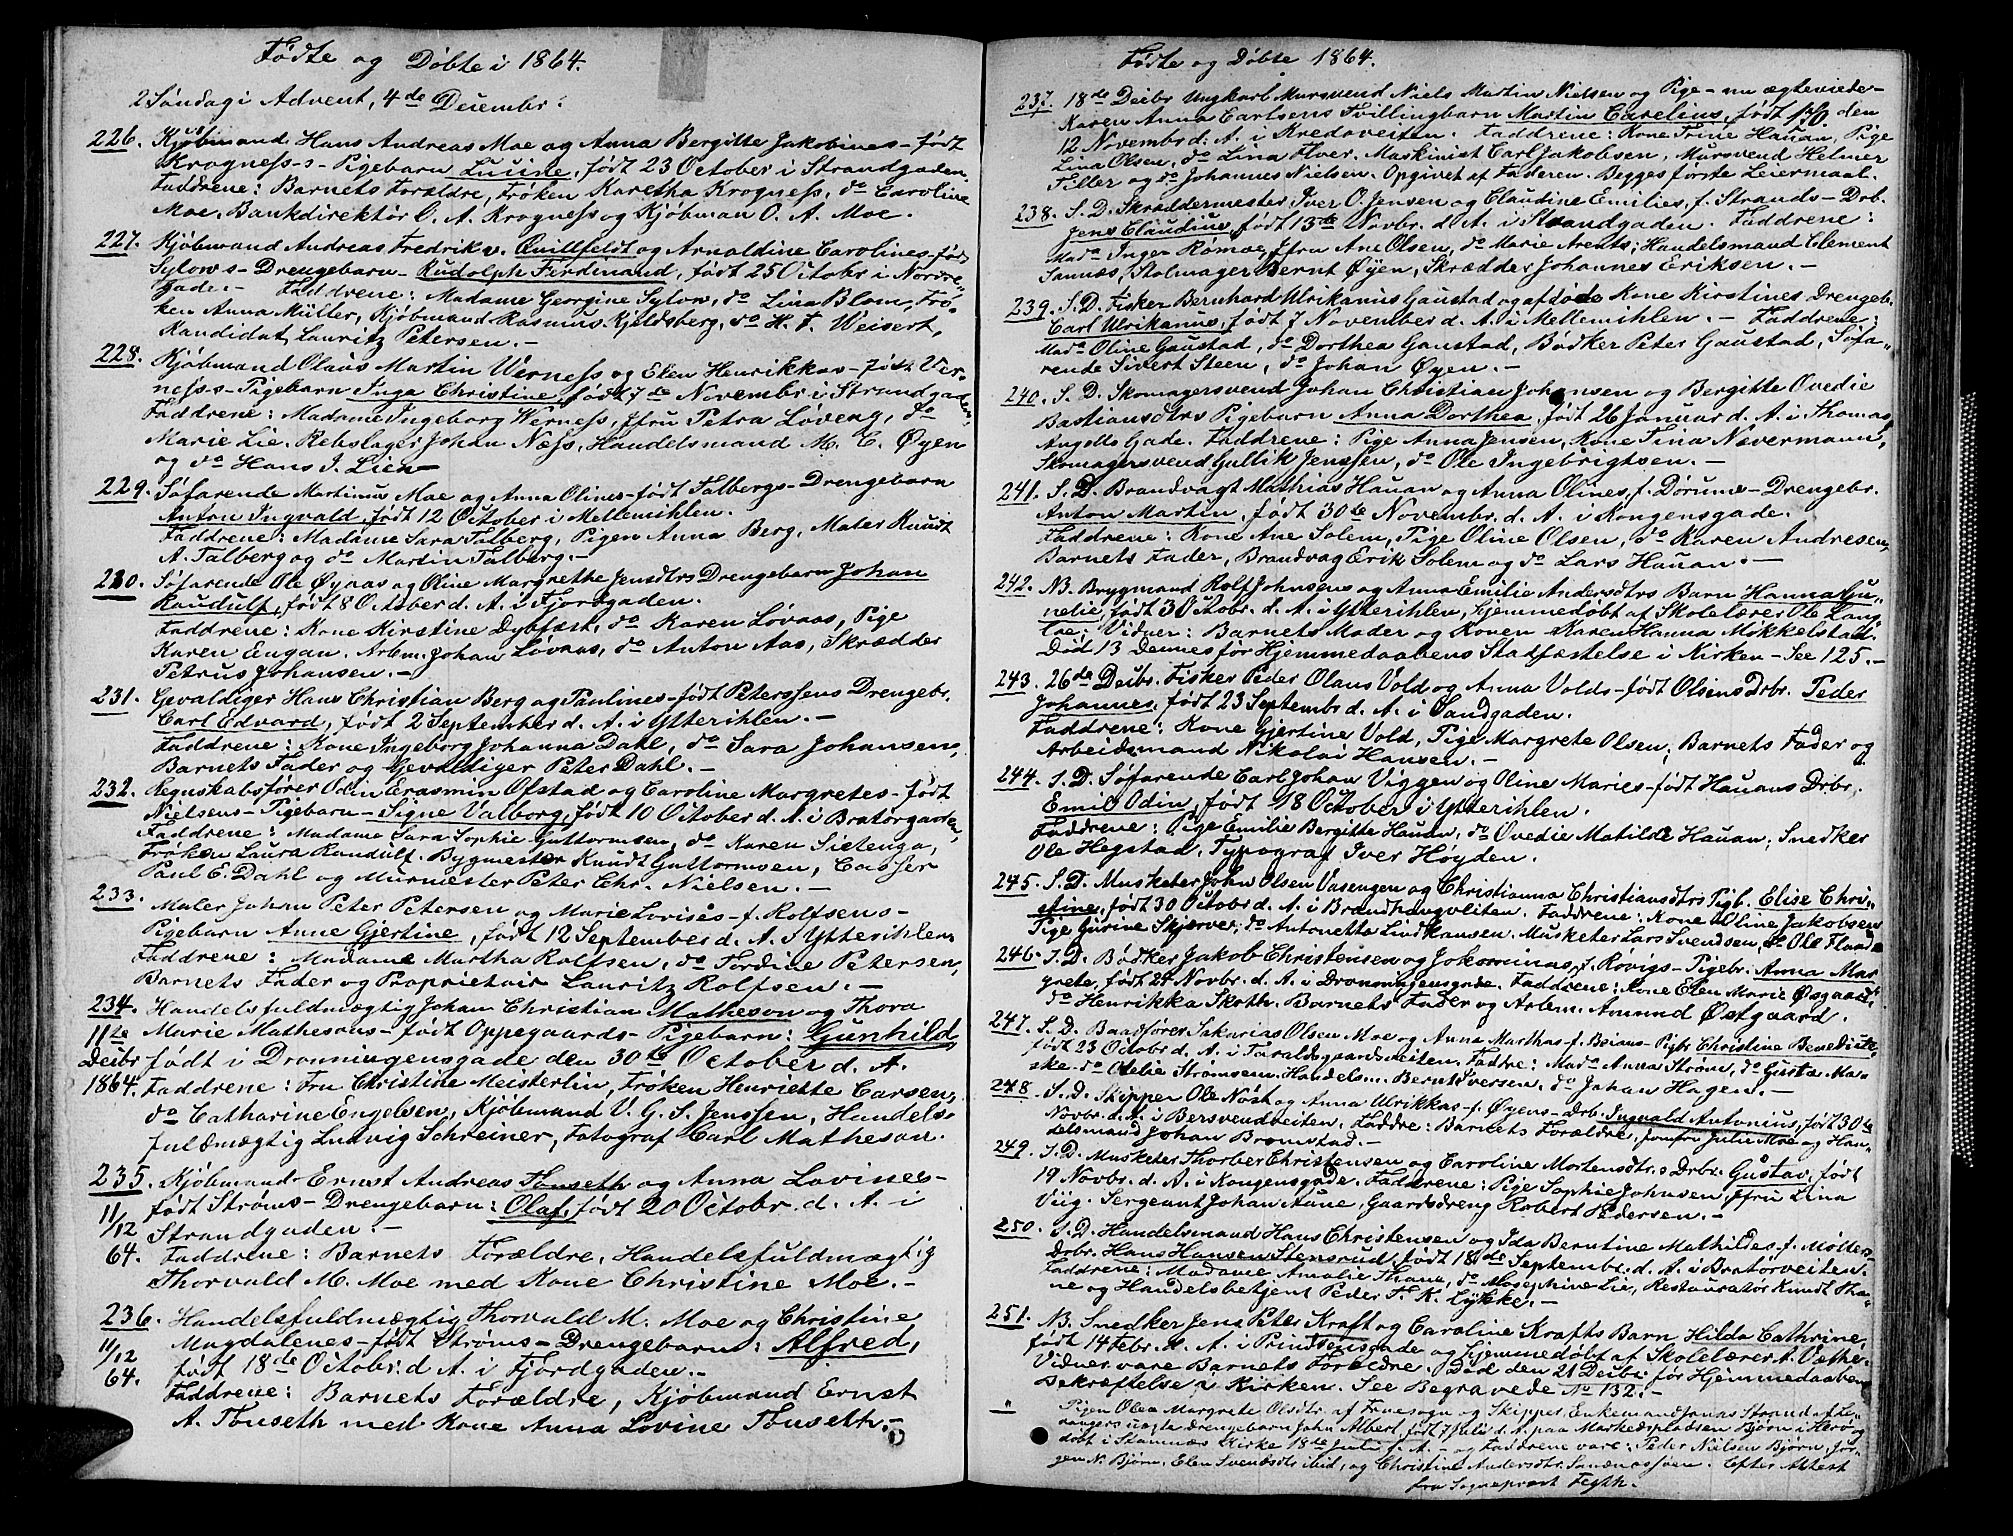 Fødte og Døbte i 1864.
2 Søndag i Advent, 4de Decembr:
226. Kjøbmand Hans Andreas Moe og Anna Bergitte Jakobines - født
Krogness-s - Pigebarn Lucide, født 23 October i Strandgaden.
Faddrene: Barnets Forældre, Frøken Karetha Krogness, do Caroline
Moe, Bankdirektør C. A. Krogness og Kjøbman O. A. Moe.
227. Kjøbmand Andreas Fredrik v. Qvillfeldt og Arnoldine Carolines - fød
Sylows - Drengebarn - Rudolph Ferdinand, født 25 Octobr i Nordre
gade. - Faddrene: Madame Georgine Sylow, do Lina Blom, Frø-
ken Anna Müller, Kjøbmand Rasmus Kjeldsberg, do H. F. Weisert,
Kandidat Lauritz Petersen. -
228. Kjøbmand Olaus Martin Werness og Elen Henrikkas - født Ver-
ness-s - Pigebarn Inga Christine, født 7de Novembr i Strandgaden,
Faddrene: Madame Ingeborg Werness, Jfru Petra Løveng, do
Marie Lie. Rebslager Johan Næss, Handelsmand M. C. Øyen
og do Hans J. Lien -
229. Søfarende Martinus Moe og Anna Olines - født Talbergs - Drengebarn
Anton Ingvald, født 12 October i Mellemihlen.
Faddrene: Madame Sara Talberg, Pigen Anna Berg, Maler Knudt
A. Talberg og do Martin Talberg. -
230. Søfarende Ole Øynas og Oline Margrethe Jensdtrs Drengebarn Johan
Randulf, født 8 October d. A. i Fjordgaden.
Faddrene: Kone Kirstine Dybfæst, do Karen Løvaas, Pige
Karen Engan. Arbm. Johan Løvaas, do Anton Aas, Skrædder
Petrus Johansen. -
231. Gevaldiger Hans Christian Berg og Paulines - født Peterssens Drengebr.
Carl Edvard, født 2 September d. A. i Ytterihlen. -
Faddrene: Kone Ingeborg Johanna Dahl, do Sara Johansen,
Barnets Fader og Gevaldiger Peter Dahl. -
232. Regnskabsfører Odin Erasmin Ofstad og Caroline Margretes - født
Nielsens - Pigebarn - Signe Valborg, født 10 October d. A. i Bratørgaden,
Faddrene: Madame Sara Sophie Guttormsen, do Karen Sietenga,
Frøken Laura Randulf. Bygmester Knudt Guttormsen, Casser
Paul E. Dahl og Murmester Peter Chr. Nielsen. -
233. Maler Johan Peter Petersen og Marie Lovises - f. Rolfsens -
Pigebarn Anne Gjertine, født 12 September d. A. i Ytterihlen,
Faddrene: Madame Martha Rolfsen, do Fordine Petersen,
Barnets Fader og Proprietair Lauritz Rolfsen. -
234. Handelsfuldmægtig Johan Christian Matheson og Thora
11te Marie Mathesons - født Oppegaards - Pigebarn: Gunhild,
Decbr født i Dronningensgade den 30te October d. A.
1864. Faddrene: Fru Christine Meisterlin, Frøken Henriette Carsen,
do Catharine Engelsen, Kjøbmand V. G. S. Jenssen, Handels-
fuldmægtig Ludvig Schreiner, Fotograf Carl Matheson.
235. Kjøbmand Ernst Andreas Tønseth og Anna Lovines -
11/12 født Strøms - Drengebarn: Olaf, født 20 Octobr. d. A. i
Strandgaden. -
64. Faddrene: Barnets Forældre, Handelsfuldmægtig
Thorvald M. Moe med Kone Christine Moe. -
236. Handelsfuldmægtig Thorvald M. Moe og Christine
11/12 Magdalenes - født Strøms - Drengebarn: Alfred,
64. født 18de Octobr. d A. i Fjordgaden. -
Faddrene: Barnets Forældre, Kjøbmand Ernst
A. Tønseth med Kone Anna Lovine Tønseth. -
Fødte og Døbte 1864.
237. 18de Decbr Ungkarl Mursvend Niels Martin Nielsen og Pige - nu ægteviede -
Karen Anna Carlsens Tvillingbarn Martin Carelius, født den
12 Novembr d. A. i Kredsveiten. Faddrene: Kone Trine Hauan, Pige
Lina Olsen, do Lina Flver. Maskinist Carl Jakobsen, Mursvend Helmer
Tiller og do Johannes Nielsen. Opgivet af Faderen. Begges første Leiermaal.
238. S. D. Skræddermester Iver O. Jensen og Claudine Emilies, f. Strands - Drb.
Jens Claudius, født 13de Novbr. d. A. i Strandgaden. Faddrene:
Mad. Inger Rømoe, Jfru Ane Olsen, do Marie Arents; Handelsmand Clement
Sannæs, Stolmager Bernt Øyen, Skrædder Johannes Eriksen. -
239. S. D. Fisker Bernhard Ulrikanus Gaustad og afdøde Kone Kirstines Drengeb.
Carl Ulrikanus, født 7 November d. A. i Mellemihlen. - Faddrene:
Mad. Oline Gaustad, do Dorthea Gaustad, Bødker Peter Gaustad, Søfa-
rende Sivert Steen, do Johan Øyen. -
240. S. D. Skomagersvend Johan Christian Johansen og Bergitte Ovedie
Bastiansdtrs Pigebarn Anna Dorthea, født 26 Januar d. A. i Thomas
Angells Gade. Faddrene: Pige Anna Jensen, Kone Tina Nævermann,
Skomagersvend Gullik Jenssen, do Ole Ingebrigtsen. -
241. S. D. Brandvagt Mathias Hauan og Anna Olines, f. Dørums - Drengebr.
Anton Martin, født 30te Novembr. d. A. i Kongensgade.
Faddrene: Kone Ane Solem, Pige Oline Olsen, do Karen Andresen,
Barnets Fader, Brandvag Erik Solem og do Lars Hauan. -
242. NB. Brygmand Rolf Johnsens og Anna Emilie Andersdtrs Barn Hanna Ju-
nelie, født 3 Octobr. d. A. i Ytterihlen, hjemmedøbt af Skolelærer Ole Lang-
loe; Vidner: Barnets Moder og Konen Karen Hanna Mokkelstad.
Død 13 Dennes før Hjemmedaabens Stadfæstelse i Kirken - See 125. -
243. 26de Decbr. Fisker Peder Olaus Vold og Anna Volds - født Olsins Drbr. Peder
Johannes, født 23 Septembr d. A. i Sandgaden.
Faddrene: Kone Gjertine Vold, Pige Margrete Olsen; Barnets Fader og
Arbeidsmand Nikolai Hansen. -
244. S. D. Søfarende Carl Johan Viggen og Oline Maries - født Hauans Drbr.
Emil Odin, født 18 October i Ytterihlen.
Faddrene: Pige Emilie Bergitte Hauan, do Ovedie Matilde Hauan; Snedker
Ole Hegstad, Typograf Iver Høyden.
245. S. D. Musketer John Olsen Vasengen og Christianna Christiansdtrs Pigb. Elise Chri-
stine, født 30 Octobr d. A. i Brandhaugveiten. Faddrene: Kone Oline Jakobsen
Pige Gurine Skjerve, do Antonette Lindhansen. Musketer Lars Svendsen, do Ole Flaad
246. S. D. Bødker Jakob Christensen og Jokominas, f. Røvigs - Pigebr. Anna Mar-
grete, født 27 Novbr. d. A. i Dronningensgade. Faddrene: Kone Elen Marie Øsgaard,
do Henrikka Skoth. Barnets Fader og Arbem. Amund Østgaard.
247. S. D. Baadfører Sakarias Olsen Moe og Anna Marthas - f. Beians - Pigb. Christine Benedicte
født 23 Octobr d. A. i Taraldsgaardsveiten. Faddre: Mad. Anna Strøm, do Gusta Ma-
ske - do Otelie Strømsem. Handelsm. Bernt Iversen, do Johan Hagen. -
248. S. D. Skipper Ole Nøst og Anna Ulrikkas - f. Øyens - Drb. Ingvald Antonius, født 30te
Novbr. d. A. i Bersvendveiten. Faddre: Barnets Forældre, Jomfru Julie Moe og Han-
delsmand Johan Bromstad. -
249. S. D. Musketer Thorber Christensen og Caroline Mortensdtr.s Drbr: Gustav, født
19 Novbr. d. A. i Kongensgade. Faddrene: Pige Sophie Johnsen, Jfru Lina
Viig. Sergeant Johan Aune, Gaardsdreng Robert Pedersen. -
250. S. D. Handelsmand Hans Christensen og Ida Berntine Mathildes, f. Møllers
Drbr. Hans Hansen Stensrud, født 18de Septembr. d. A. i Bratørveiten.
Faddrene: Madame Amalie Thane, do Mosephine Lie, Restauratør Knudt Tha-
ne og Handelsbetjent Peder F. K. Lykke. -
251. NB. Snedker Jens Peter Kraft og Caroline Krafts Barn Hilda Cathrine,
født 14 Febr. d. A. i Prindsensgade og hjemmedøbt af Skolelærer A. Væthe.
Vidner vare Barnets Forældre. Død den 21 Decbr. før Hjemmedaabens
Bekræftelse i Kirken. See Begravede No 132. -
" Pigen Olea Margrete Olsdtr. af Fruesogn og Skipper, Enkemand Jonas Strand af Le-
rangers uægte Drengebarn John Albert, født 7 Juli d. A. paa Markedspladsen Bjørn i Herø og
døbt i Stamnæs Kirke 18de Juli s. A. - og Faddrene vare: Peder Nielsen Bjørn, Jør-
gen N. Bjørn, Elen Svendsdtr ibid, og Christine Andersdtr. Sandnessjøen. Efter Attest
fra Sognepræst Fegth.